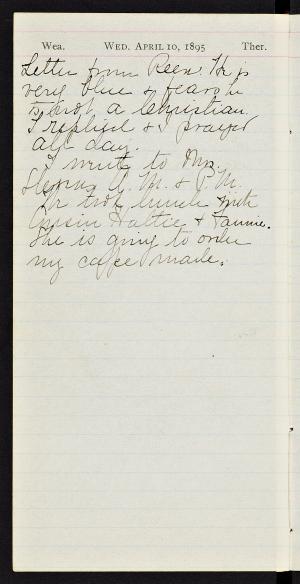 Wea. WED. APRIL 10, 1895 Ther.
Letter from Reex. He is
very blue & fears he
is not a Christian.
I replied & I prayed
all day.
I went to Mrs.
A. M. & P. M.
or took lunch with
Cousin Hattie & Fannie.
She is going to order
my cape made.